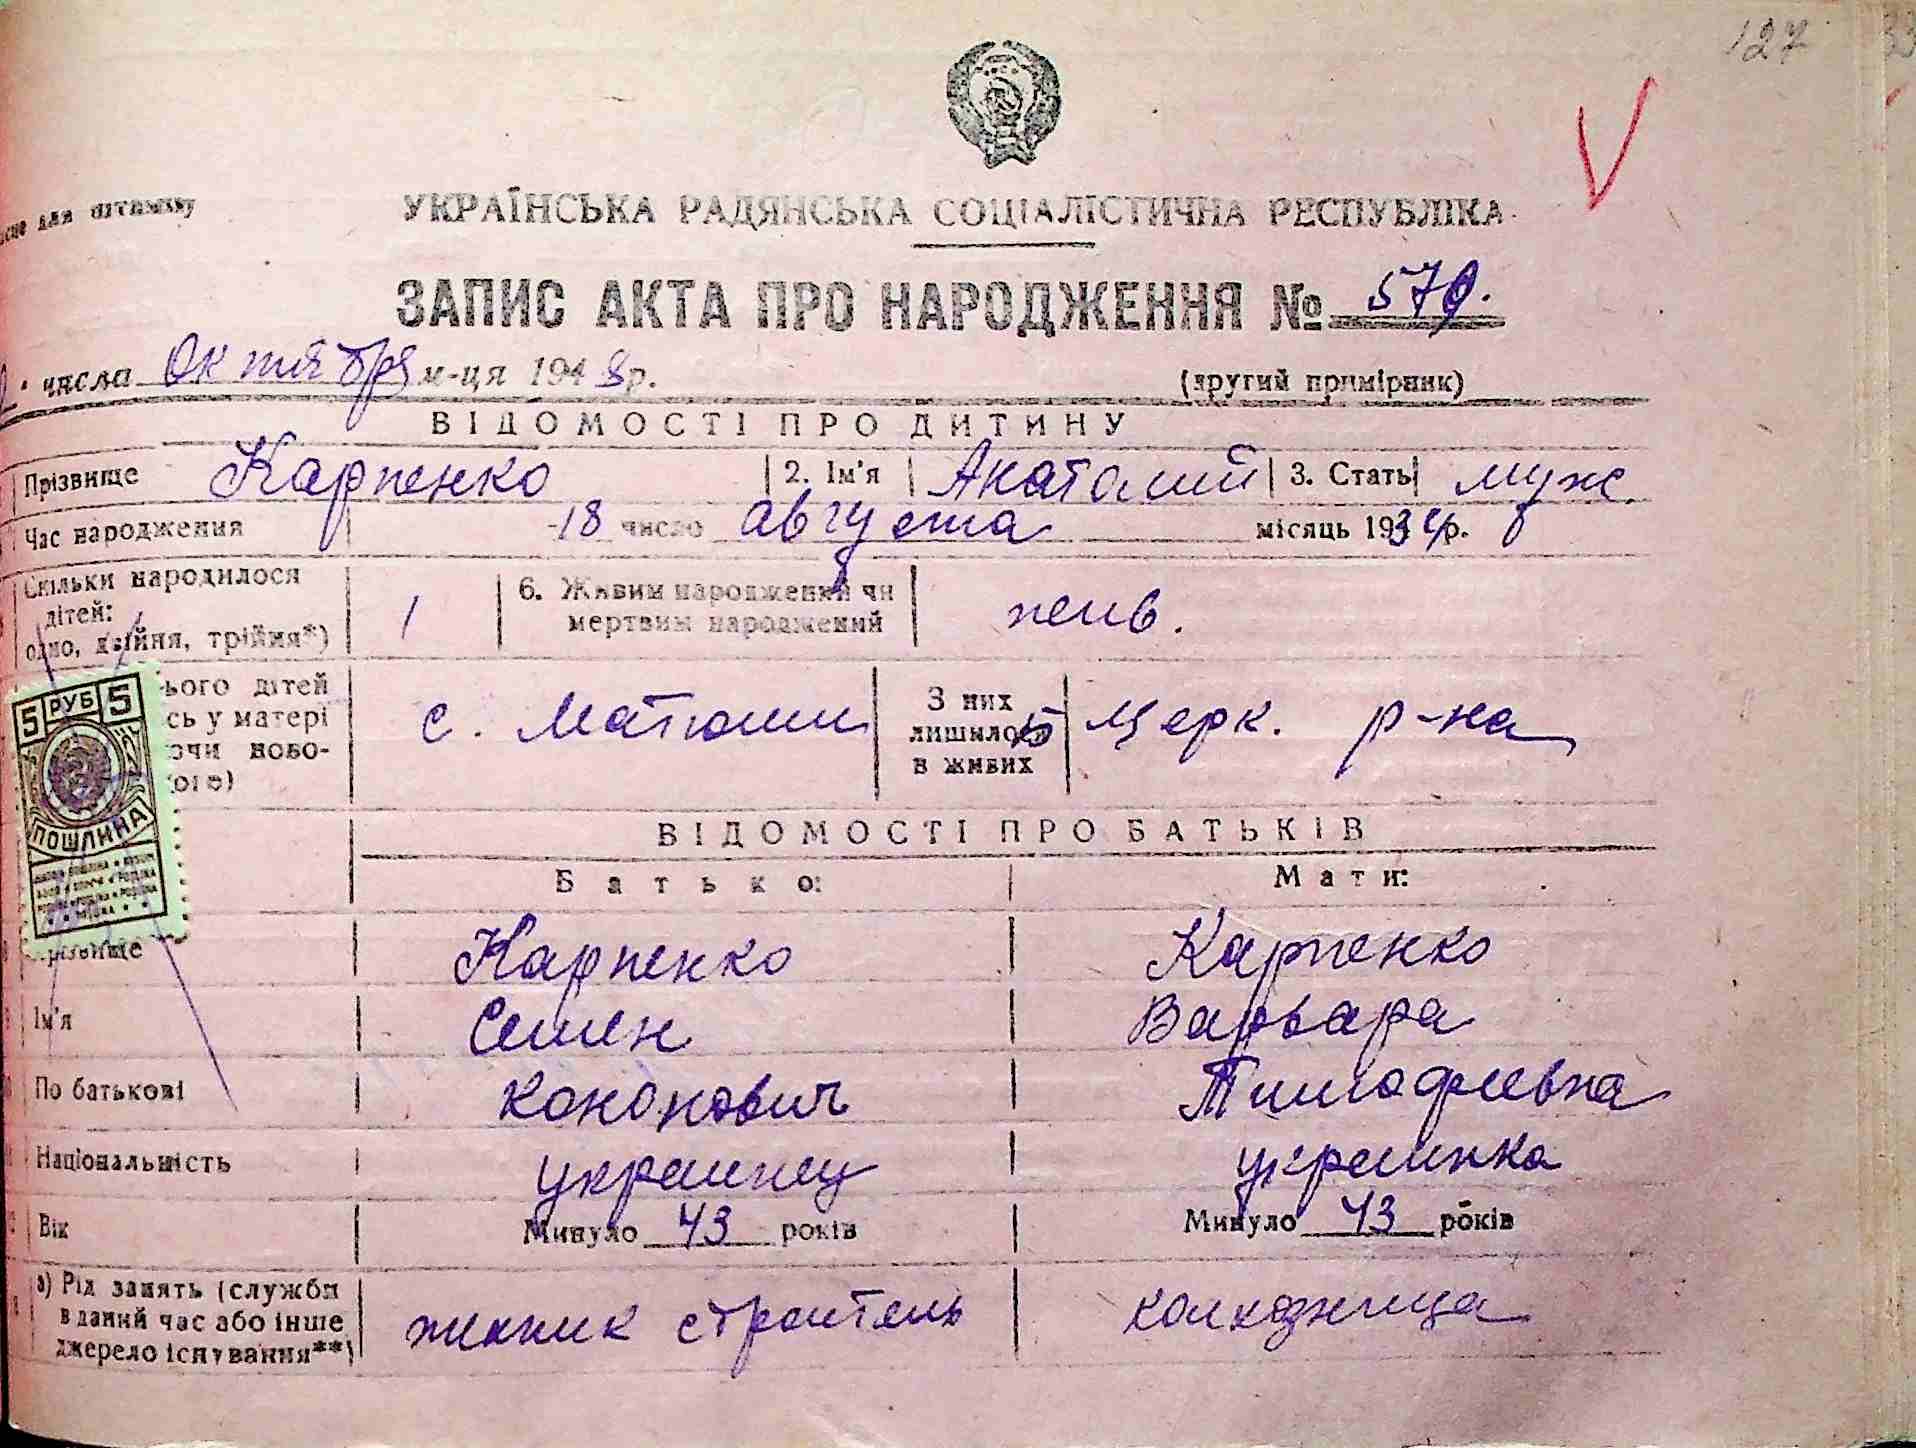 127
УКРАЇНСЬКА РАДЯНСЬКА СОЦІАЛІСТИЧНА РЕСПУБЛІКА
ЗАПИС АКТА ПРО НАРОДЖЕННЯ № 579.
числа Октября м-ця 1948 р. (другий примірник)
ВІДОМОСТІ ПРО ДИТИНУ
Прізвище Карпенко 2. Ім'я Анатолий 3. Стать муж.
Час народження 18 число августа місяць 1934 р.
Скільки народилося дітей: одно, двійня, трійня*) 1 6. Живим народжений чи мертвим народжений
ього дітей сь у матері ючи ново- кого) с. Матюши З них лишилось в живих 15 Церк. р-на
5 РУБ 5
ПОШЛИНА
ВІДОМОСТІ ПРО БАТЬКІВ
Батько: Мати:
Прізвище Карпенко Карпенко
Ім'я Семен Варвара
По батькові Кононович Тимофеевна
Національність украинец украинка
Вік Минуло 43 років Минуло 43 років
а) Рід занять (служби в даний час або інше джерело існування**) строитель колхозница